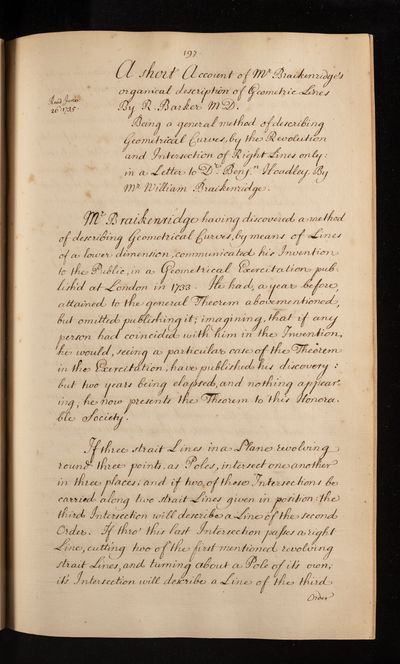 197
A short Account of Mr. Braikenridge's
organical description of Geometric Lines
By R. Barker M.D.
Read June
26th 1735.
Being a general method of describing
Geometrical Curves, by the Revolution
and Intersection of Right Lines only:
in a Letter to Dr. Benj.n Hoadley. By
Mr. William Braikenridge.
Mr. Braikenridge having discovered a method
of describing Geometrical Curves, by means of Lines
of a lower dimension, communicated his Invention
to the Public, in a Geometrical Exercitation pub-
lish'd at London in 1733. He had, a year before,
attained to the general Theorem abovementioned,
but omitted publishing it; imagining, that if any
person had coincided with him in the Invention,
he would, seeing a particular case of the Theorem
in the Exercitation, have published his discovery:
but two years being elapsed, and nothing appear-
ing, he now presents the Theorem to this Honora-
ble Society.
If three strait Lines in a Plane revolving
round three points, as Poles, intersect one another
in three places, and if two of these Intersections be
carried along two strait Lines given in position: the
third Intersection will describe a Line of the second
Order. If thro' this last Intersection passes a right
Line, cutting two of the first mentioned revolving
strait Lines, and turning about a Pole of its own;
it's Intersection will describe a Line of the third
Order